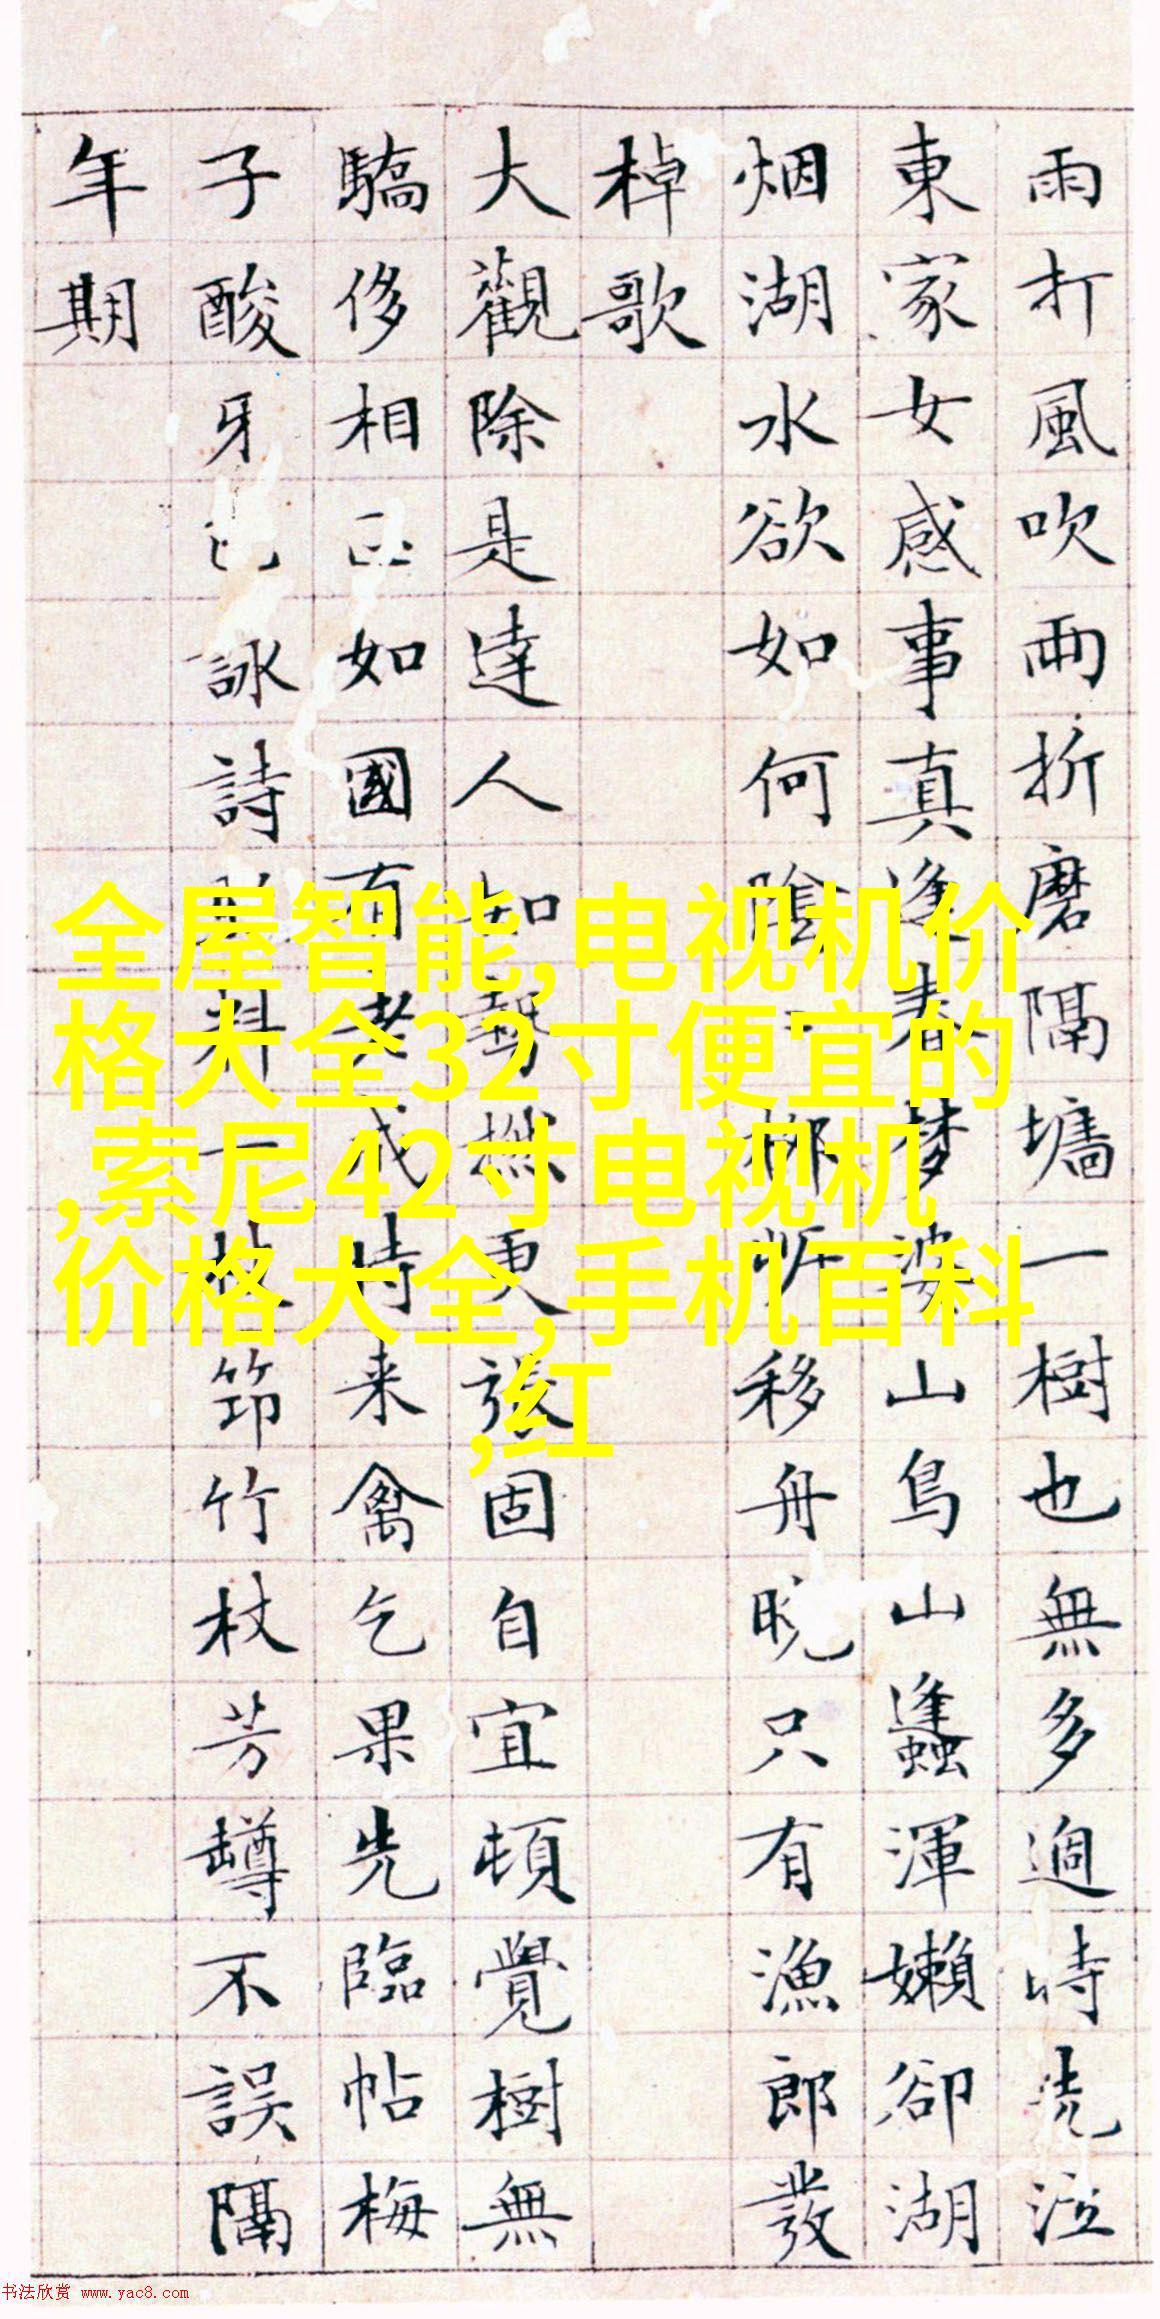 雨打風吹雨折磨隔墻一樹也無多過時洗泣
東家女感事真逢春夢婆山鳥山蠭渾嬾卻湖
烟湖水欲如何陰移舟晚只有漁郎發
棹歌
大觀除是達人知更張固自宜頓覺樹無
驕侈相如國有老成時来禽乞果先臨帖梅
子酸牙詠詩料一枝筇竹杖芳罇不誤隔
年期
全屋智能,电视机价
格大全32寸便宜的
,索尼42寸电视机
价格大全,手机百科
,红
书法欣赏 www.yac8.com